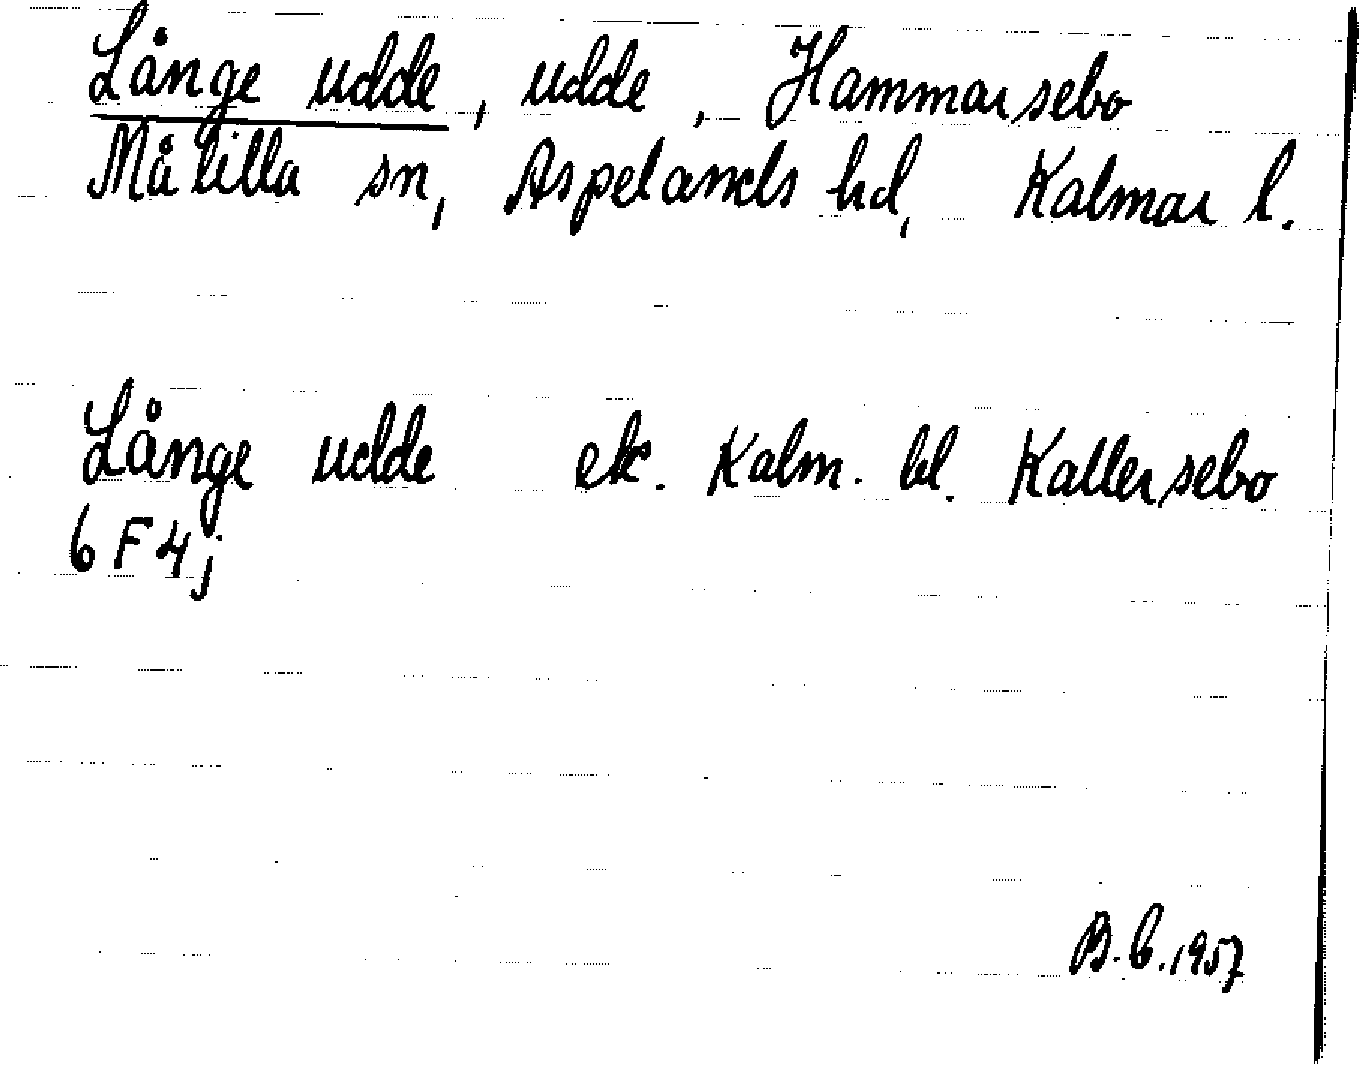 Långe udde, udde, Hammarsebo
Målilla sn, Aspelands hd, Kalmar l.
Långe udde ek. Kalm. bl. Kallersebo
6 F 4 j
B. C. 1957